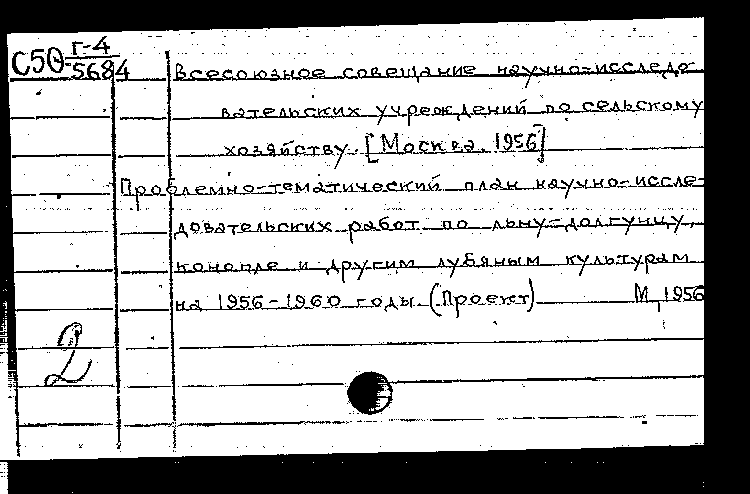 С50 Г-4
5684
Всесоюзное совещание научно-исследо
вательских учреждений по сельскому
хозяйству. [Москва. 1956]
Проблемно-тематический план научно-иссле-
довательских работ по льну-долгунцу,
конопле и другим лубяным культурам
на 1956-1960 годы. (Проект) М, 1956
2